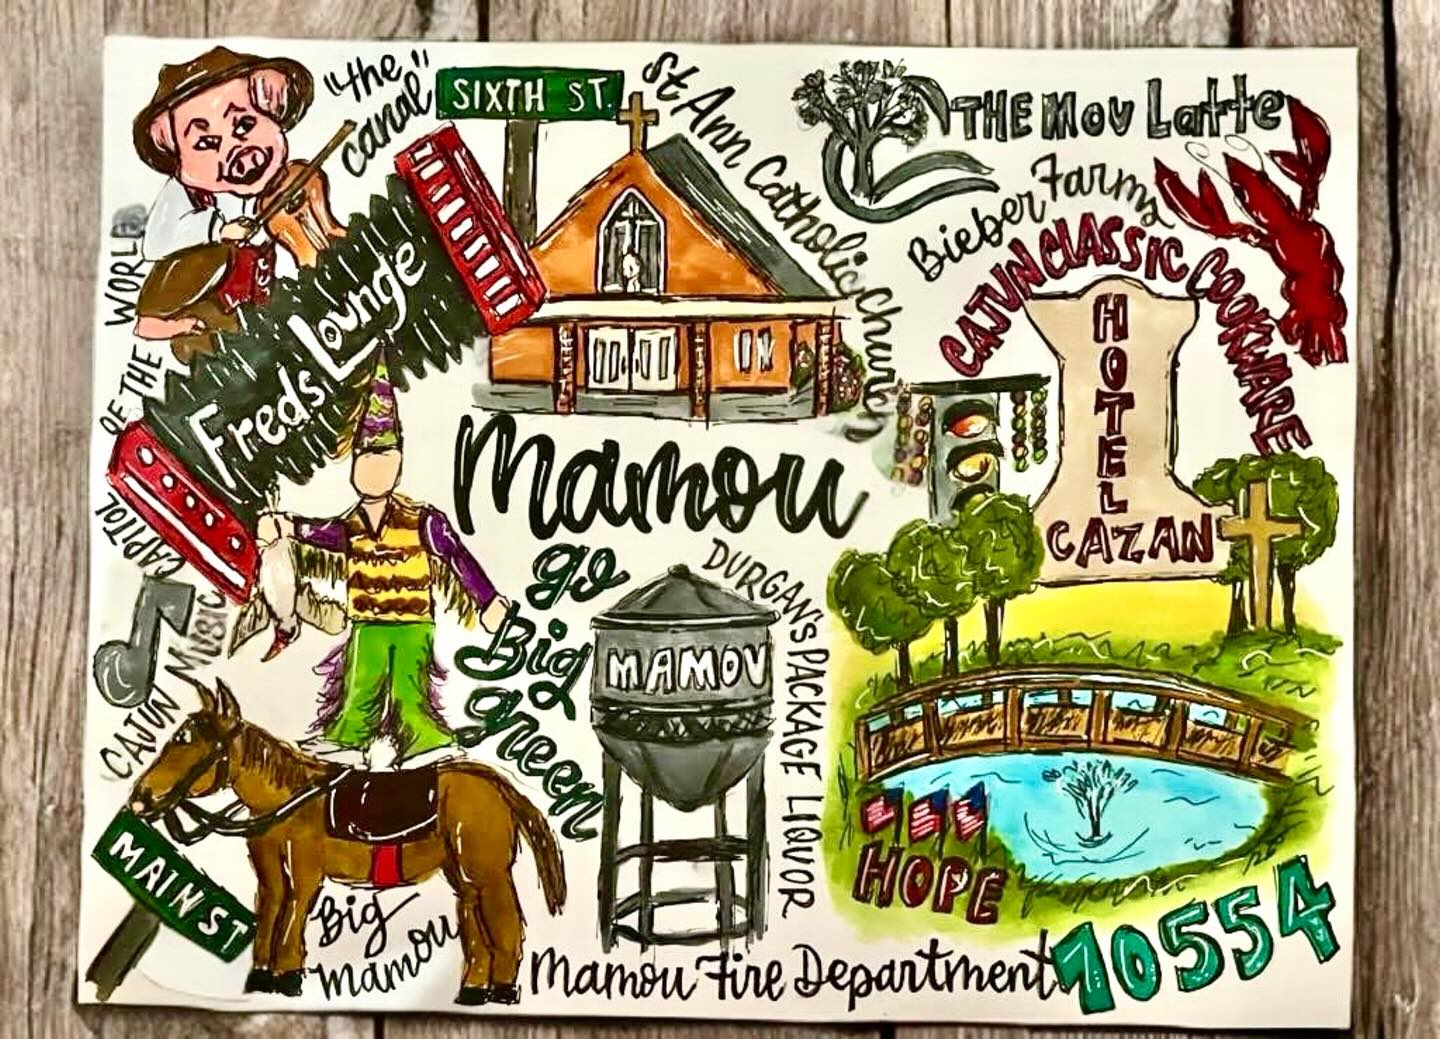 "the canal"
SIXTH ST.
St Ann Catholic Church
THE MOU Latte
Bieber Farms
CAJUN CLASSIC COOKWARE
HOTEL
CAZAN
Freds Lounge
CAJUN MUSIC CAPITOL OF THE WORLD
Mamou
go
Big
green
MAMOU
DURGAN'S PACKAGE LIQUOR
HOPE
MAIN ST
Big
Mamou
Mamou Fire Department
70554